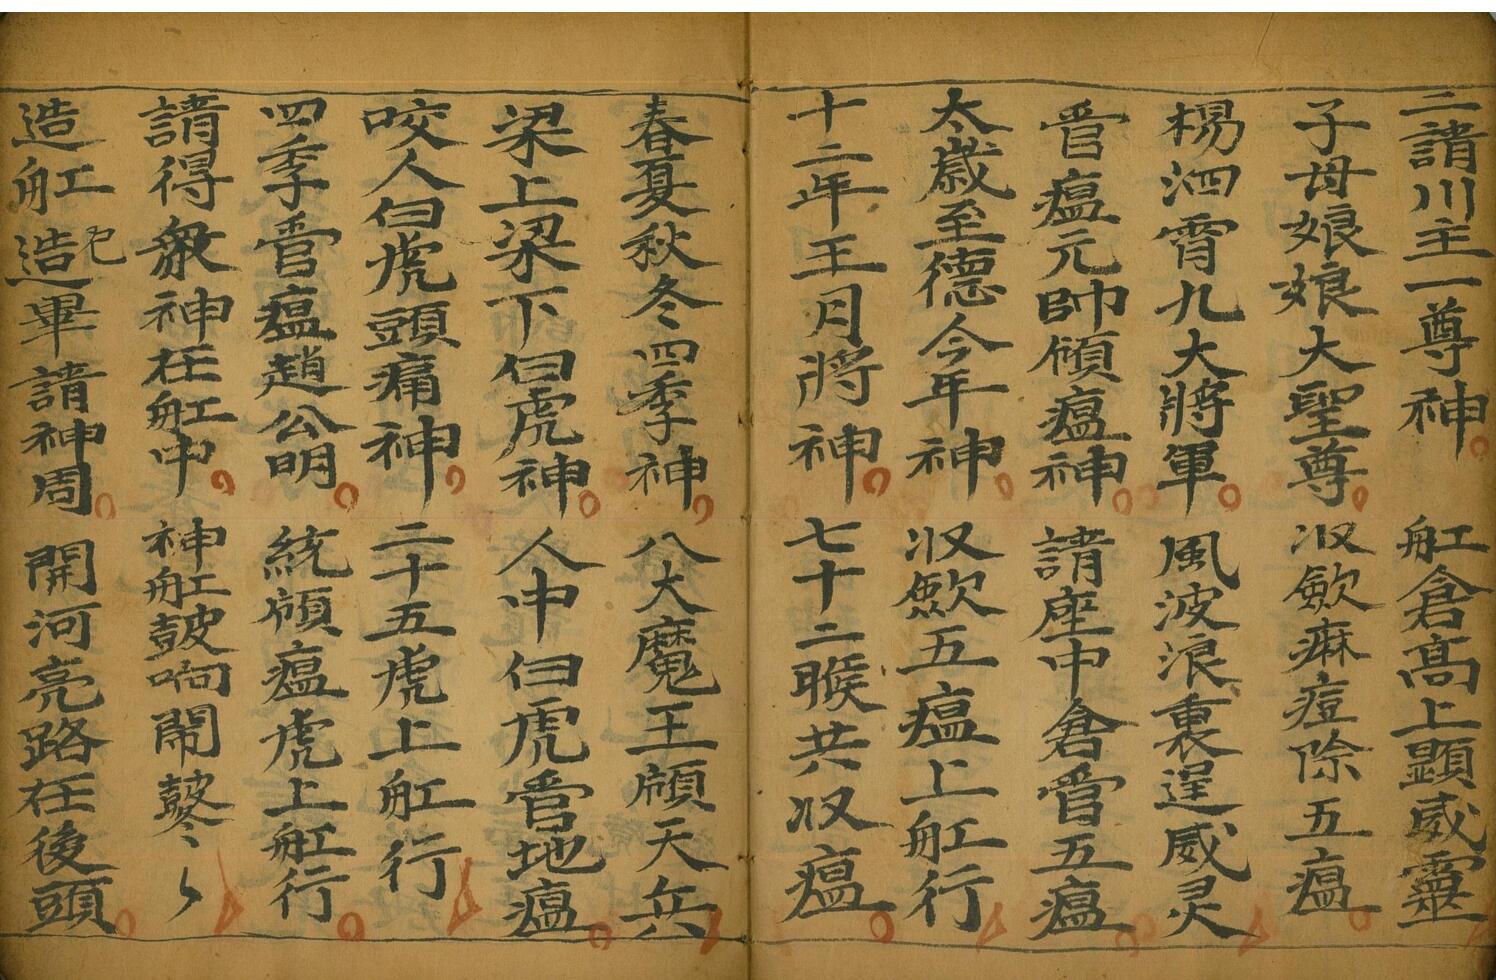 二請川主一尊神 舡倉髙上顕威靈
子母娘娘大聖尊 収歛痳痘除五瘟
楊泗霄九大將軍 風波浪裏逞威灵
管瘟元帥領瘟神 請座中倉管五瘟
太歲至德今年神 収歛五瘟上舡行
十二年王月將神 七十二睺共収瘟
春夏秋冬四季神 八大魔王領天兵
梁上梁下白虎神 人中白虎管地瘟
咬人白虎頭痛神 二十五虎上舡行
四季管瘟趙公明 統領瘟虎上舡行
請得衆神在舡中 神舡鼓响閙鼕〻
造舡造畢請神周 開河亮路在後頭